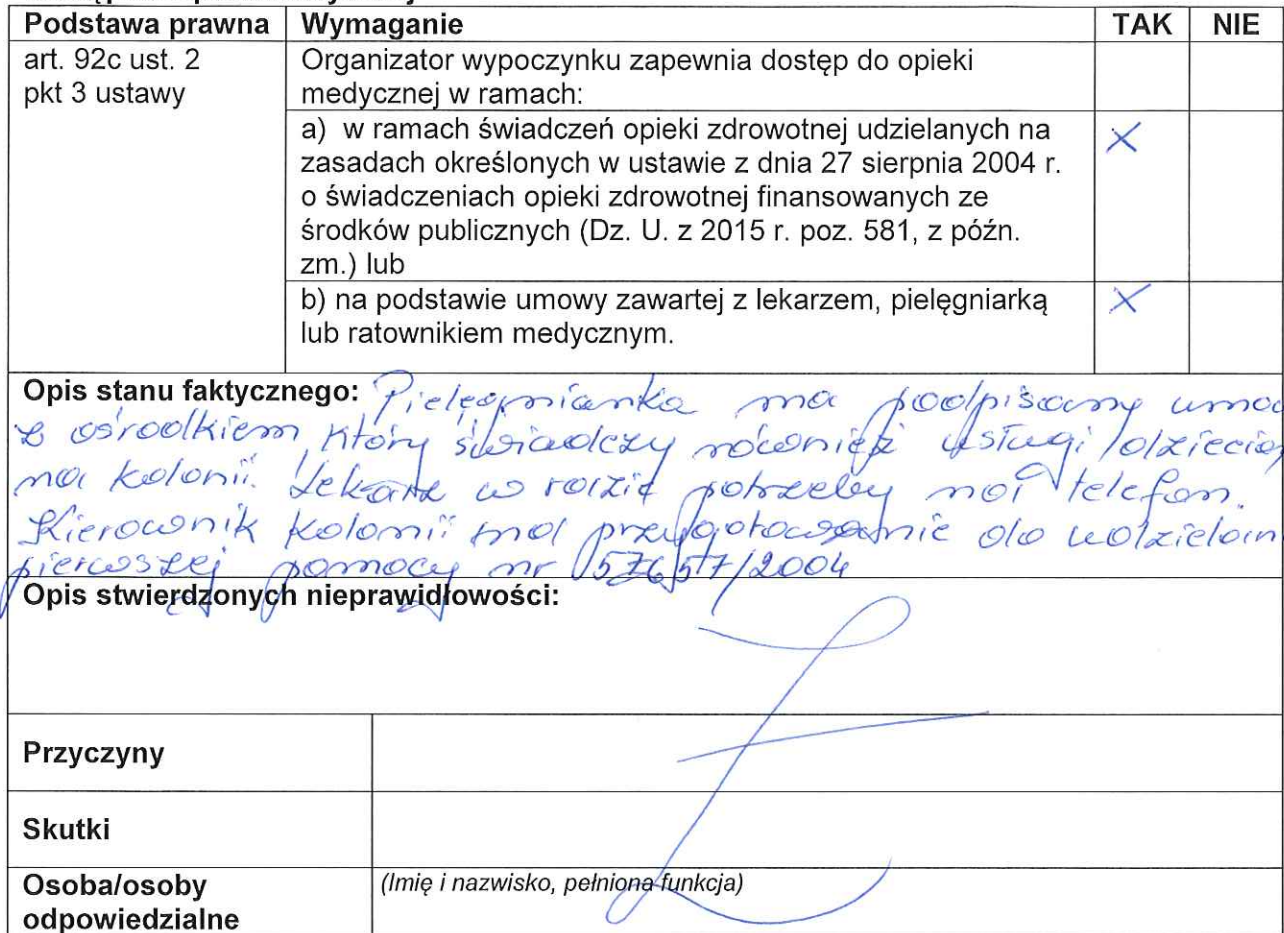 Podstawa prawna Wymaganie TAK NIE
art. 92c ust. 2
pkt 3 ustawy
Organizator wypoczynku zapewnia dostęp do opieki
medycznej w ramach:
a) w ramach świadczeń opieki zdrowotnej udzielanych na
zasadach określonych w ustawie z dnia 27 sierpnia 2004 r.
o świadczeniach opieki zdrowotnej finansowanych ze
środków publicznych (Dz. U. z 2015 r. poz. 581, z późn.
zm.) lub
X
b) na podstawie umowy zawartej z lekarzem, pielęgniarką
lub ratownikiem medycznym.
X
Opis stanu faktycznego: Pielęgnianka ma podpisany umo
z ośrodkiem, który świadczy również usługi dziecio
na kolonii. Lekarz w razie potrzeby na telefon.
Kierownik kolonii ma przygotowanie do udzielan
pierwszej pomocy nr 57657/2004
Opis stwierdzonych nieprawidłowości:
Przyczyny
Skutki
Osoba/osoby
odpowiedzialne
(Imię i nazwisko, pełniona funkcja)